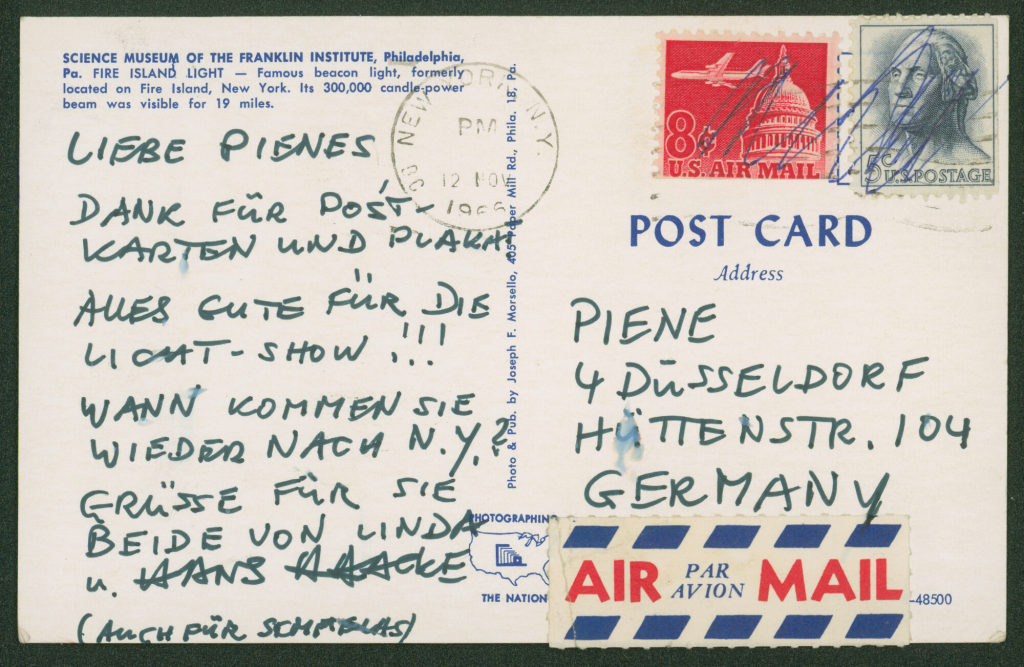 SCIENCE MUSEUM OF THE FRANKLIN INSTITUTE, Philadelphia,
Pa. FIRE ISLAND LIGHT — Famous beacon light, formerly
located on Fire Island, New York. Its 300,000 candle-power
beam was visible for 19 miles.
LIEBE PIENES
DANK FÜR POST-
KARTEN UND PLAKAT.
ALLES GUTE FÜR DIE
LICHT-SHOW !!!
WANN KOMMEN SIE
WIEDER NACH N.Y.?
GRÜSSE FÜR SIE
BEIDE VON LINDA
u. HANS HAACKE
(AUCH FÜR
Photo & Pub. by Joseph F. Morsello, 405 Paper Mill Rd., Phila. 18, Pa.
NEW YORK, N.Y.
PM
12 NOV
8¢
U.S. AIR MAIL
5¢
U.S. POSTAGE
POST CARD
Address
PIENE
4 DÜSSELDORF
HÜTTENSTR. 104
GERMANY
PHOTOGRAPHING
THE NATION
AIR PAR AVION MAIL
-48500